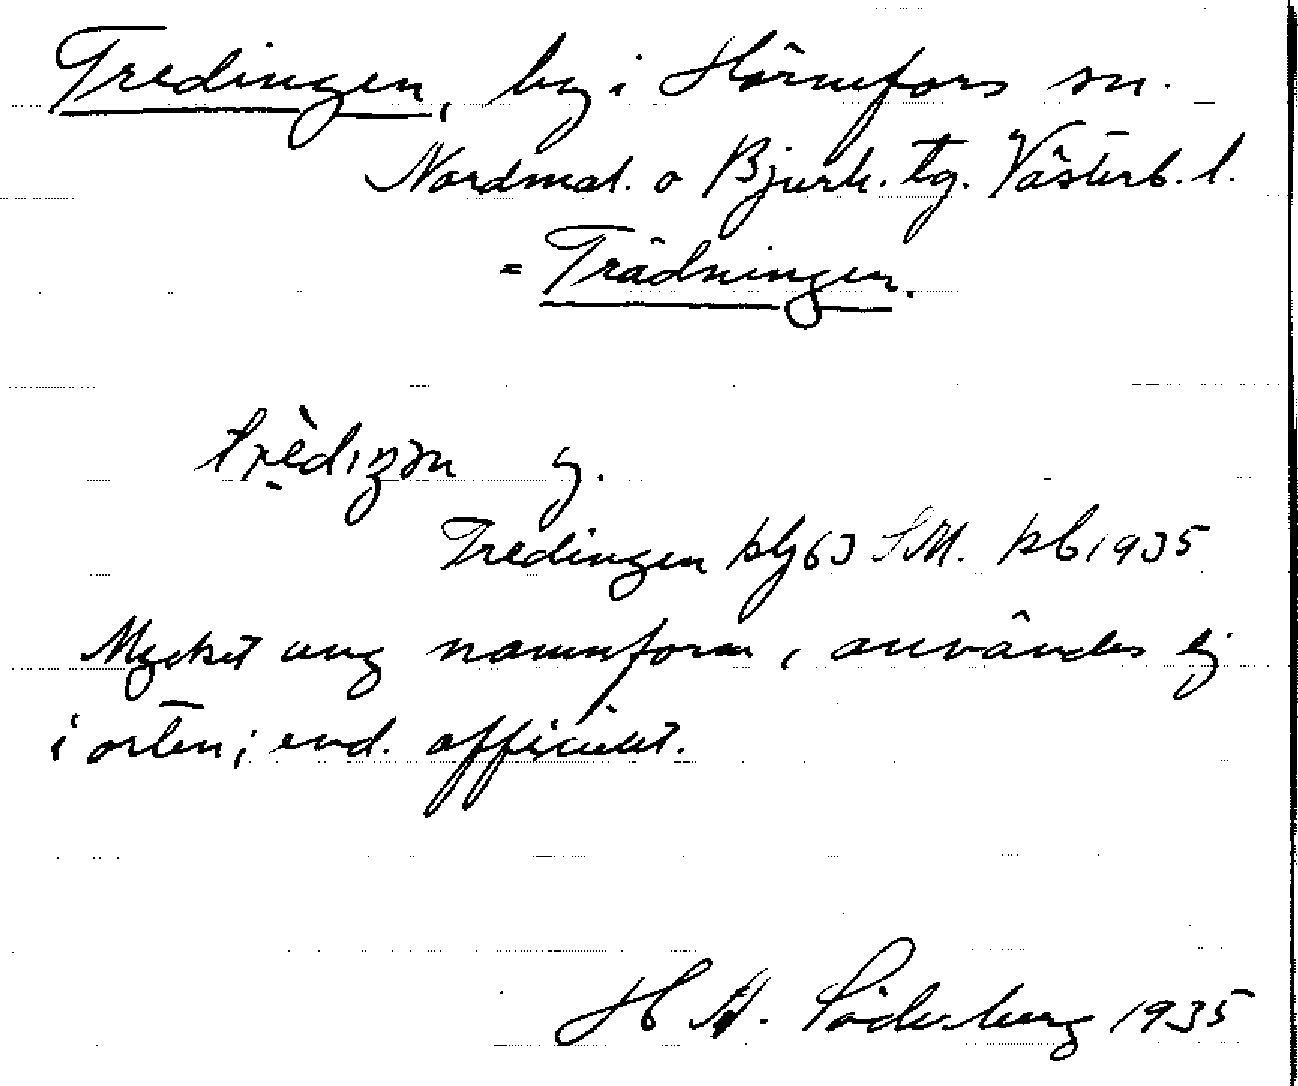 Tredingen, by i Hörnefors sn.
Nordmal. o Bjurh. tg. Västerb. l.
= Trädningen.
trèdıŋən y.
Tredingen blj 63 S.M. kb 1935
Mycket ung namnform, användes ej
i orten; end. officiellt.
H A. Söderberg 1935